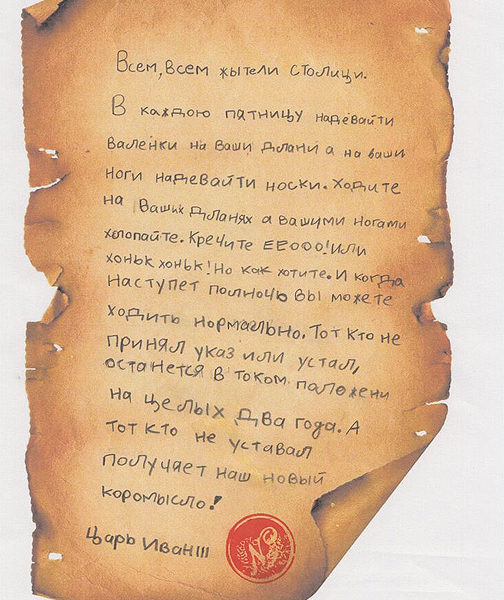 Всем, всем жытели столици.
В каждою патницу надевайти
валенки на ваши длани а на ваши
ноги надевайти носки. Ходите
на Ваших дланях а вашими ногами
хлопайте. Кречите ЕЕООО! или
хоньк хоньк! Но как хотите. И когда
наступет полночь вы можете
ходить нормально. Тот кто не
принял указ или устал,
останется в током положени
на целых два года. А
тот кто не уставал
получает наш новый
коромысло!
Царь Иван III